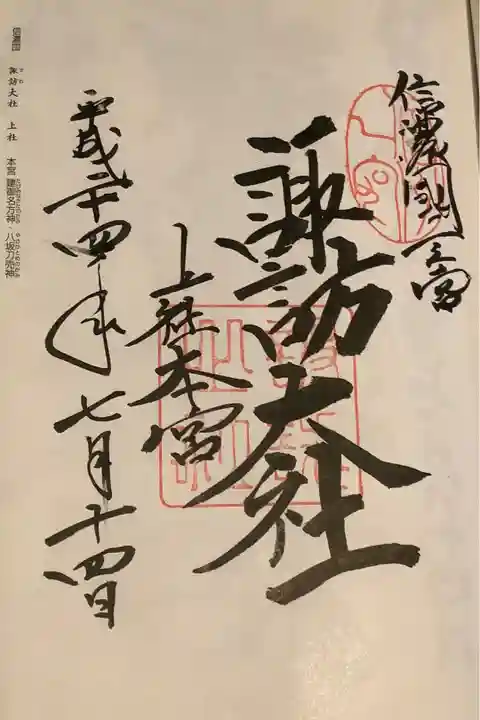 信濃國一之宮
諏訪大社
上社本宮
平成二十四年七月十四日
信濃国 諏訪大社 上社 本宮 建御名方神・八坂刀売神